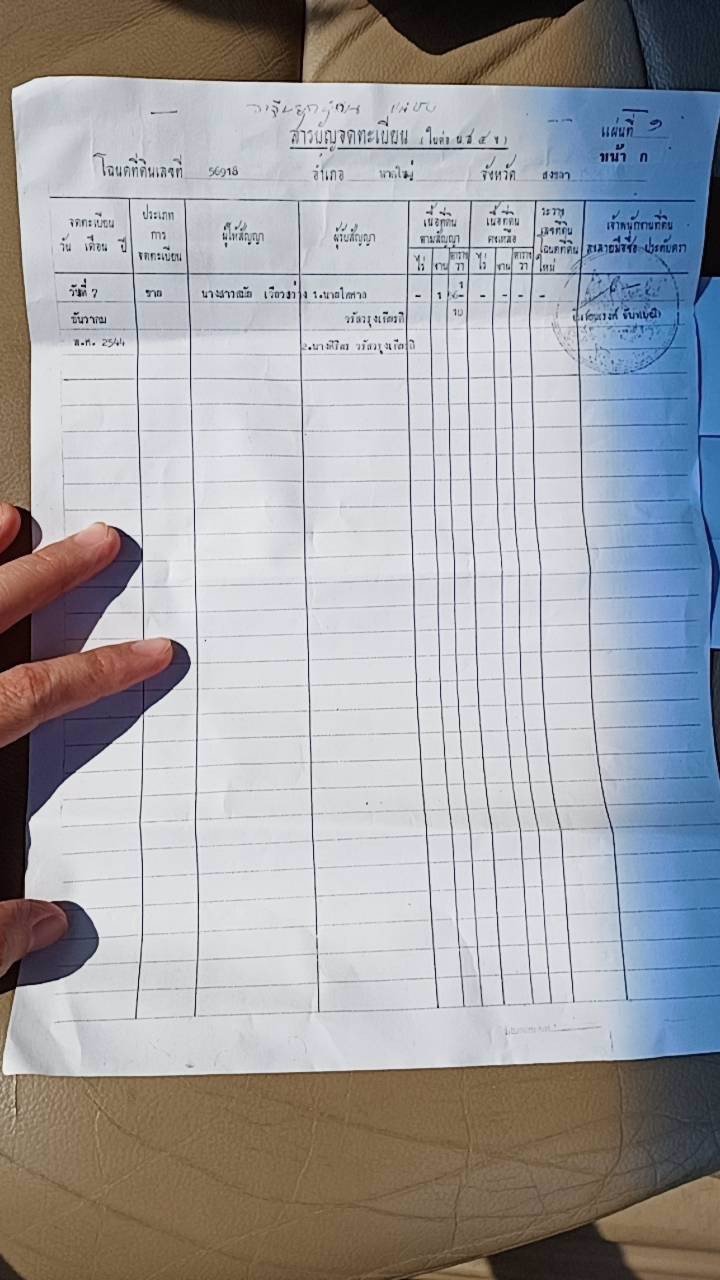 สารบัญจดทะเบียน (ใบต่อ น.ส. ๔ จ.)
แผ่นที่ ๑
หน้า ก
โฉนดที่ดินเลขที่ 56918 อำเภอ หาดใหญ่ จังหวัด สงขลา
จดทะเบียน วัน เดือน ปี
ประเภท การ จดทะเบียน
ผู้ให้สัญญา
ผู้รับสัญญา
เนื้อที่ดิน ตามสัญญา
ไร่ งาน ตาราง วา
เนื้อที่ดิน คงเหลือ
ไร่ งาน ตาราง วา
ระวาง เลขที่ดิน โฉนดที่ดิน ใหม่
เจ้าพนักงานที่ดิน ลงลายมือชื่อ ประทับตรา
วันที่ 7 ขาย นางสาว 1. นาย - 1 - - - -
ธันวาคม 10
พ.ศ. 2544 2. นาง